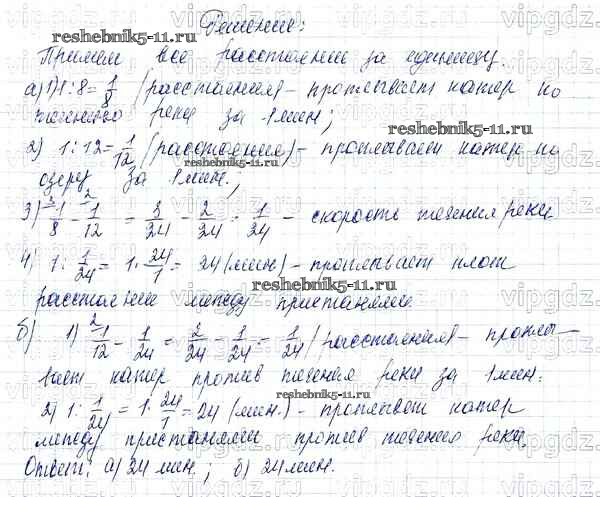 Решение:
Примем всё расстояние за единицу.
а) 1) 1 : 8 = 1/8 (расстояния) – проплывает катер по
течению реки за 1 мин;
2) 1 : 12 = 1/12 (расстояния) – проплывает катер по
озеру за 1 мин.;
3) 1/8 - 1/12 = 3/24 - 2/24 = 1/24 – скорость течения реки
4) 1 : 1/24 = 1 · 24/1 = 24 (мин) – проплывает плот
расстояние между пристанями.
б) 1) 1/12 - 1/24 = 2/24 - 1/24 = 1/24 (расстояния) – проплы–
вает катер против течения реки за 1 мин.
2) 1 : 1/24 = 1 · 24/1 = 24 (мин.) – проплывет катер
между пристанями против течения реки.
Ответ: а) 24 мин.; б) 24 мин.
reshebnik5-11.ru
reshebnik5-11.ru
reshebnik5-11.ru
reshebnik5-11.ru
reshebnik5-11.ru
vipgdz.ru